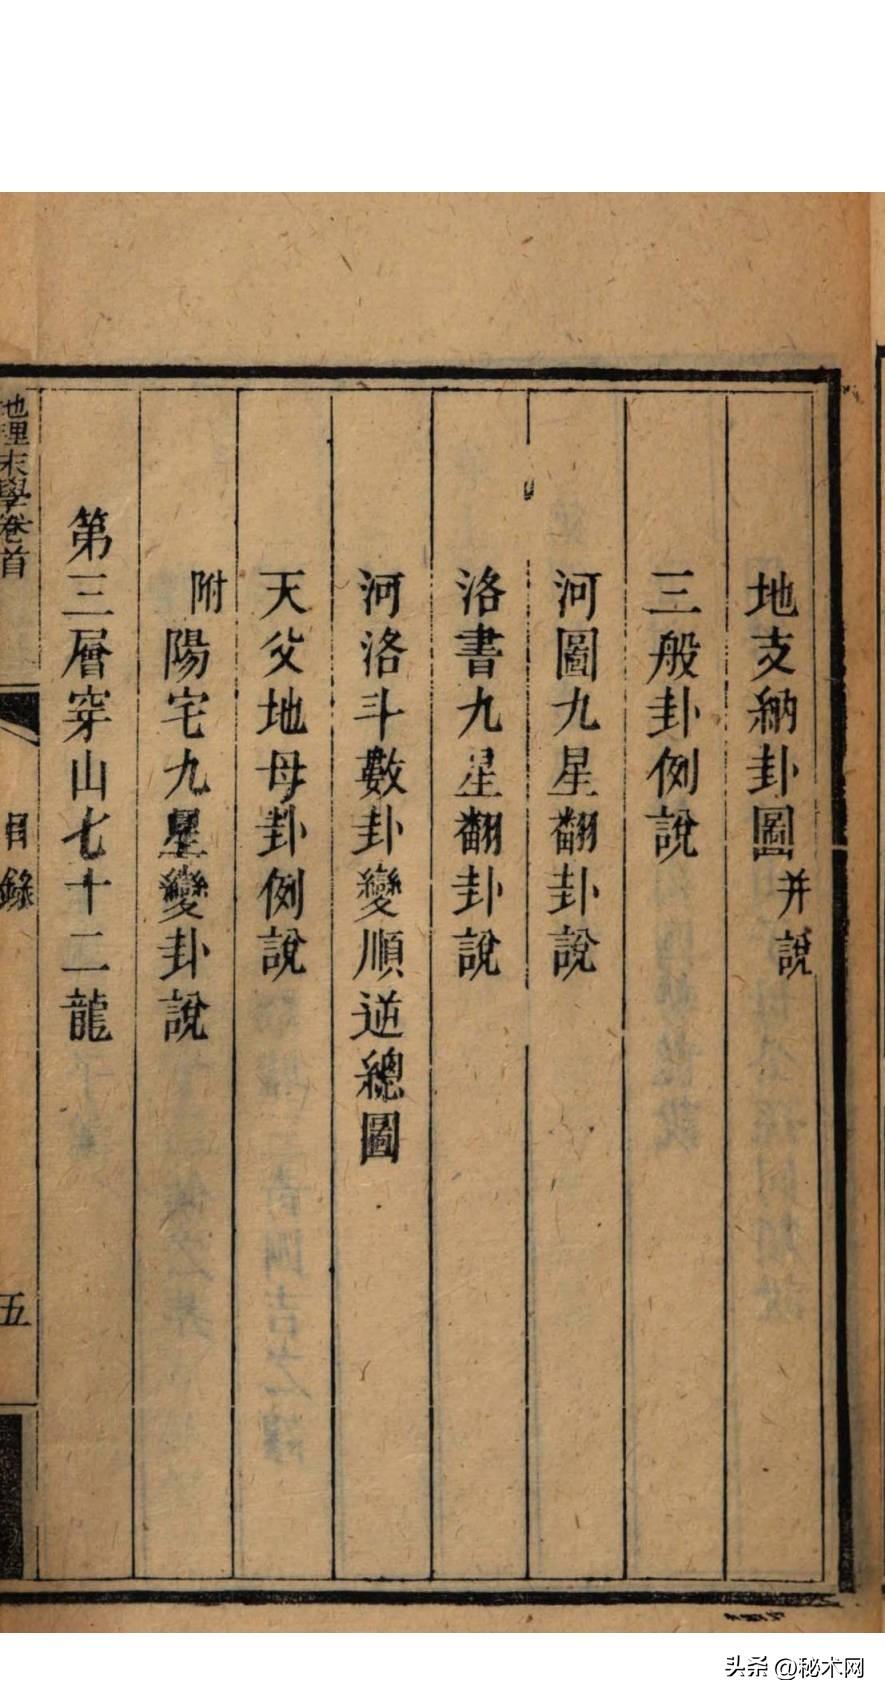 地支納卦圖并說
三般卦例說
河圖九星翻卦說
洛書九星翻卦說
河洛斗數卦變順逆總圖
天父地母卦例說
附陽宅九星變卦說
第三層穿山七十二龍
地理末學卷首
目錄
五
头条 @秘术网